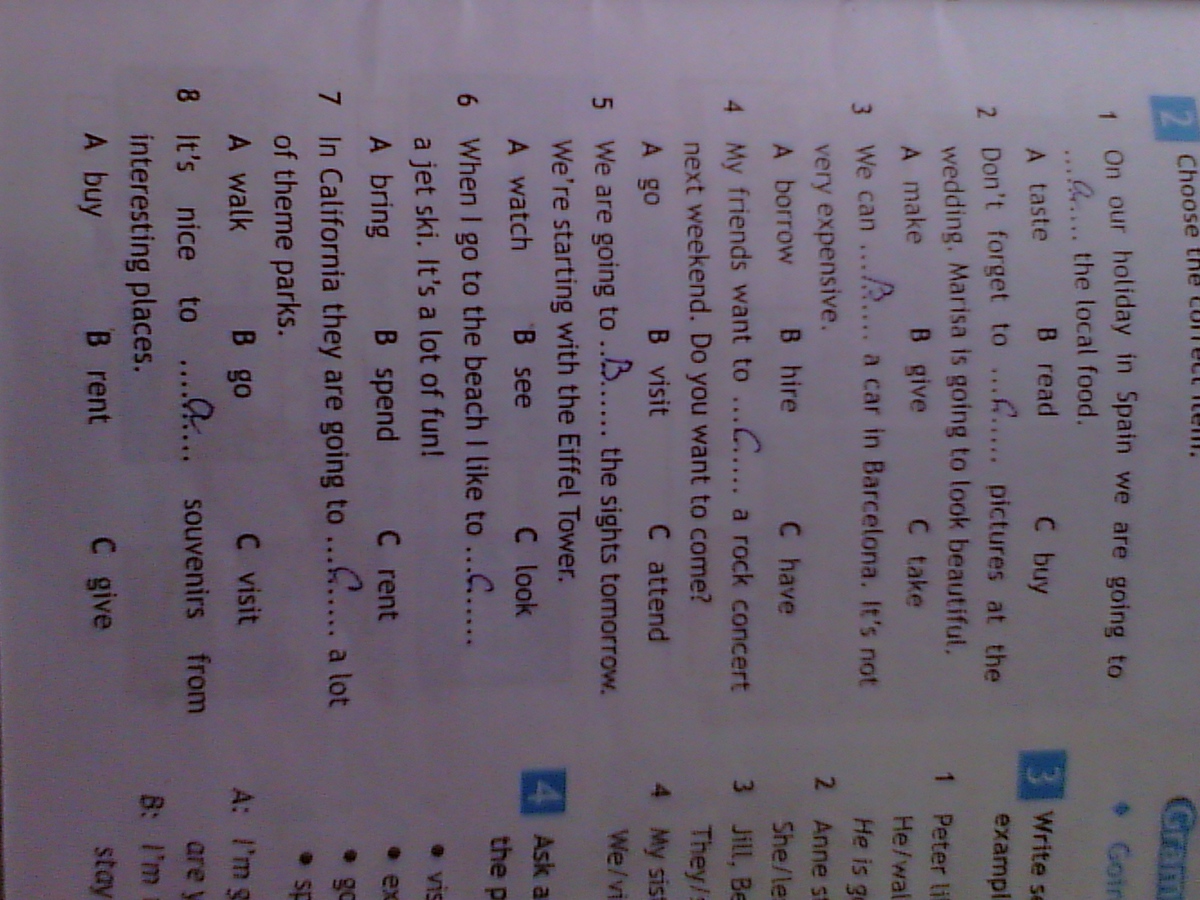 2 Choose the correct item.
1 On our holiday in Spain we are going to
.....a..... the local food.
A taste B read C buy
2 Don't forget to ...C..... pictures at the
wedding. Marisa is going to look beautiful.
A make B give C take
3 We can ...B..... a car in Barcelona. It's not
very expensive.
A borrow B hire C have
4 My friends want to ....C..... a rock concert
next weekend. Do you want to come?
A go B visit C attend
5 We are going to ..B...... the sights tomorrow.
We're starting with the Eiffel Tower.
A watch B see C look
6 When I go to the beach I like to ...C......
a jet ski. It's a lot of fun!
A bring B spend C rent
7 In California they are going to ...C..... a lot
of theme parks.
A walk B go C visit
8 It's nice to .....a..... souvenirs from
interesting places.
A buy B rent C give
Gram
Goin
3 Write se
exampl
1 Peter li
He/wal
He is g
2 Anne st
She/le
3 Jill, Be
They/
4 My sist
We/vi
4 Ask a
the p
• vis
• go
• ex
• sp
A: I'm g
are y
B: I'm
stay